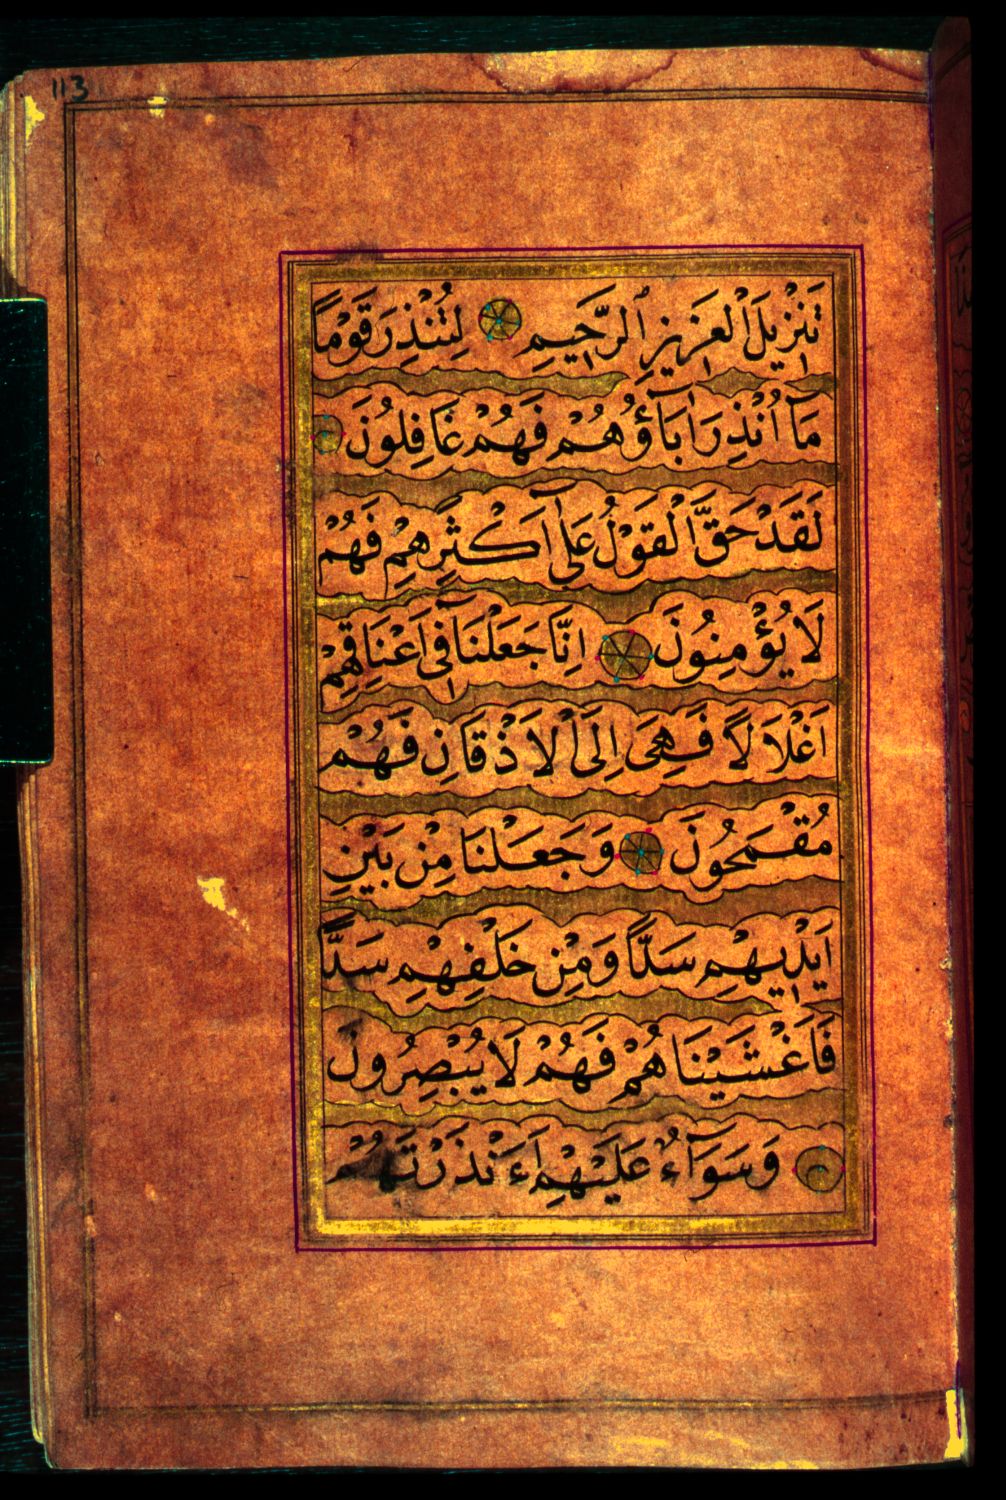 113
تَنْزِيلَ الْعَزِيزِ الرَّحِيمِ لِتُنْذِرَ قَوْمًا
مَآ اُنْذِرَ اٰبَآؤُهُمْ فَهُمْ غَافِلُونَ
لَقَدْ حَقَّ الْقَوْلُ عَلٰٓى اَكْثَرِهِمْ فَهُمْ
لَا يُؤْمِنُونَ اِنَّا جَعَلْنَا فٓى اَعْنَاقِهِمْ
اَغْلَالًا فَهِىَ اِلَى الْاَذْقَانِ فَهُمْ
مُقْمَحُونَ وَجَعَلْنَا مِنْ بَيْنِ
اَيْدِيهِمْ سَدًّا وَمِنْ خَلْفِهِمْ سَدًّا
فَاَغْشَيْنَاهُمْ فَهُمْ لَا يُبْصِرُونَ
وَسَوَآءٌ عَلَيْهِمْ ءَاَنْذَرْتَهُمْ